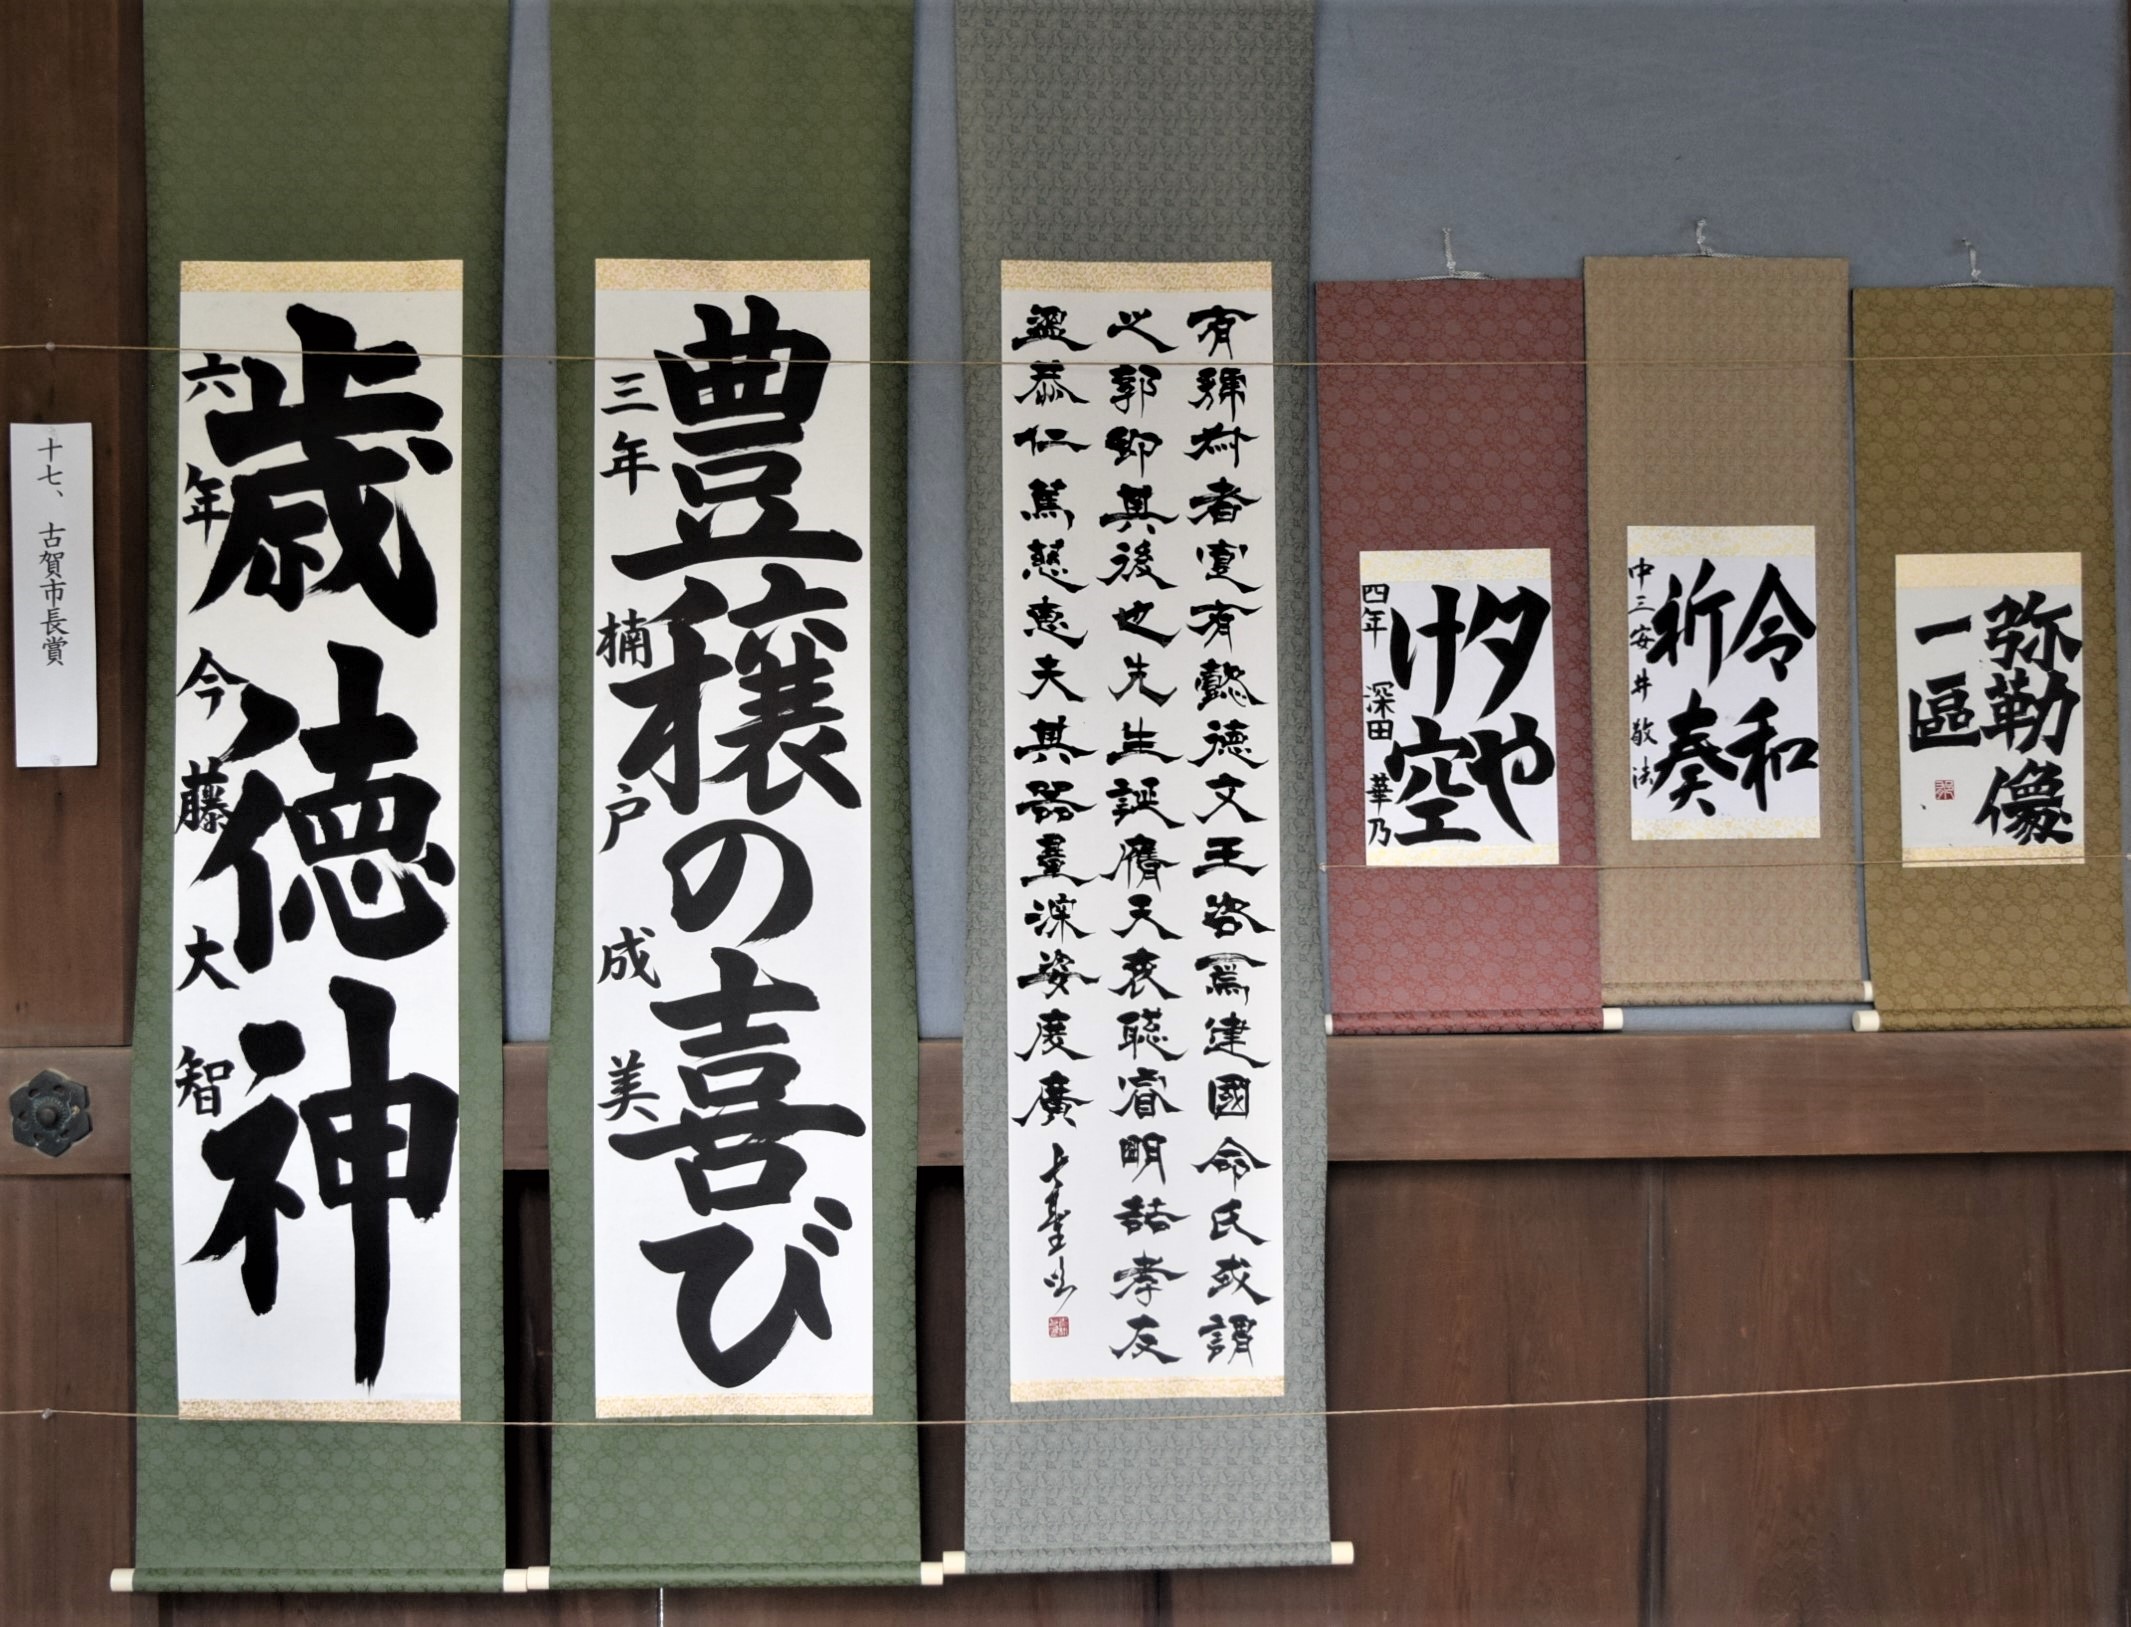 十七、古賀市長賞
歳徳神
六年 今藤大智
豊穣の喜び
三年 楠戸成美
有號者有懿德文王咨焉建國命氏或謂
之郭即其後也先生誕膺天衷聰睿明喆孝友
溫恭仁篤慈惠夫其器量深姿度廣
夕や
け空
四年 深田 華乃
令和
祈奏
中三安井敬法
弥勒像
一區